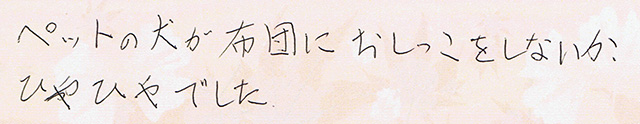 ペットの犬が布団におしっこをしないか、
ひやひやでした